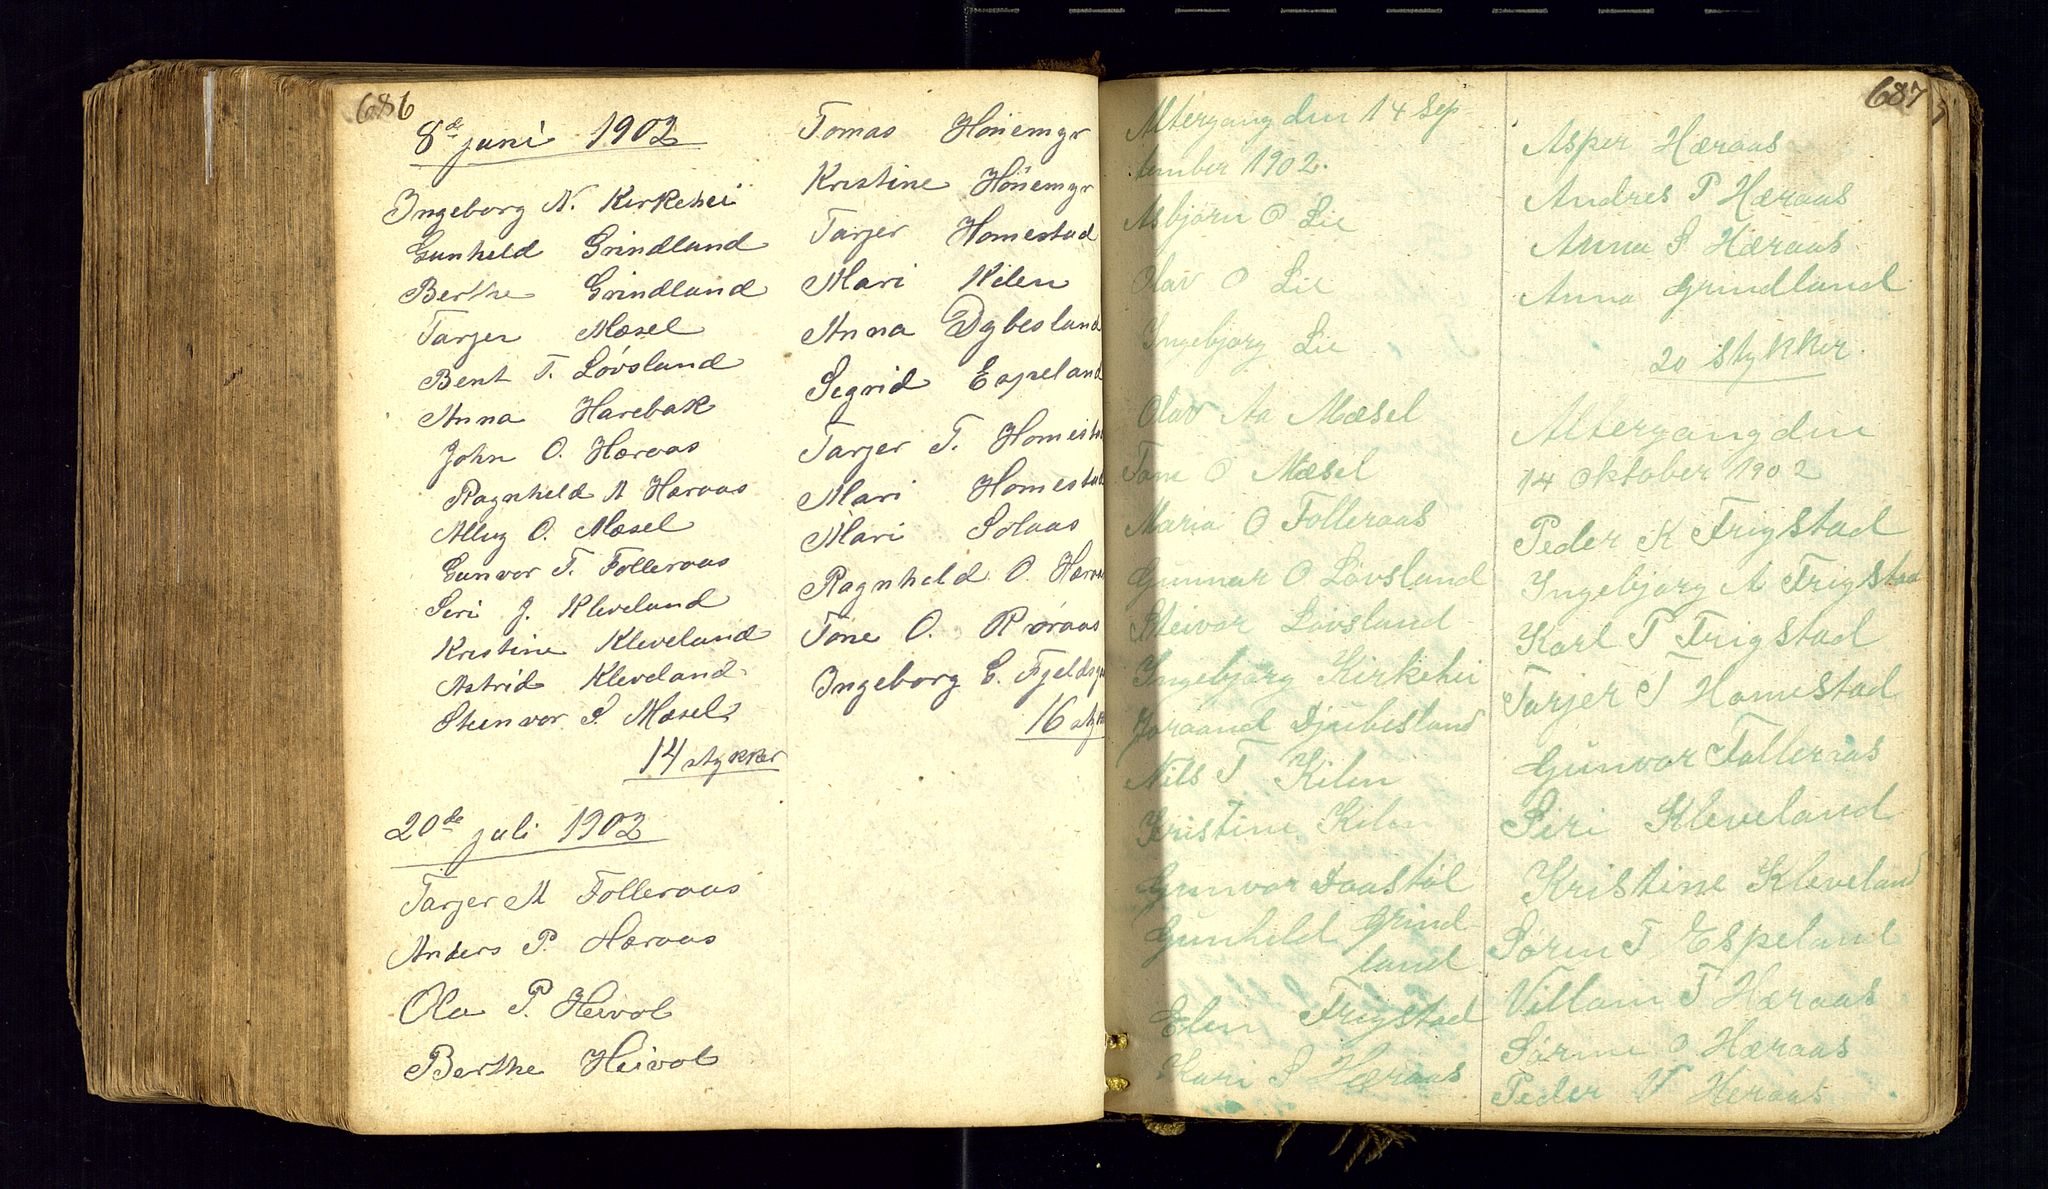 686
8de juni 1902
Ingeborg N. Kirkehei
Gunheld Grindland
Berthe Grindland
Tarjer Mæsel
Bent T. Lövsland
Anna Harebak
John O. Hæraas
Ragnheld A Hæraas
O. Mæsel
Gunvor T. Folleraas
Seri J. Kleveland
Kristine Kleveland
Astrid Kleveland
Steenvor S. Mæsel
14 stykker
20de juli 1902
Tarjer M Folleraas
Anders P. Hæraas
Ola P. Heivol
Berthe Heivol
Tomas Hönemyr
Kristine Hönemyr
Tarjer Homestad
Mari Kilen
Anna Dybesland
Segrid Espeland
Tarjer T. Homesta
Mari Homestad
Mari Solaas
Ragnheld O. Hæraa
Tone O. Röraas
Ingeborg G. Fjeldsga
16 styk
687
Altergang den 14 Sep
tember 1902.
Asbjørn O Lie
Olav O Lie
Ingebjørg Lie
Olav Aa Mæsel
Tone O Mæsel
Maria O Folleraas
Gunnar O Lövsland
Steivor Lövsland
Ingebjørg Kirkehei
Joraand Djubesland
Nils T Kilen
Kristine Kilen
Gunvor Daastöl
Gunhild Grind
land
Elen Frigstad
Kari S Hæraas
Asper Hæraas
Andres P Hæraas
Anna S Hæraas
Anna Grundland
20 stykker.
Altergang den
14 Oktober 1902
Peder K Frigstad
Ingebjørg A Frigstad
Karl P Frigstad
Tarjer T Homestad
Gunvor Folleraas
Siri Kleveland
Kristine Kleveland
Sören T Espeland
Villam T Hæraas
Sörine O Hæraas
Peder V Heraas